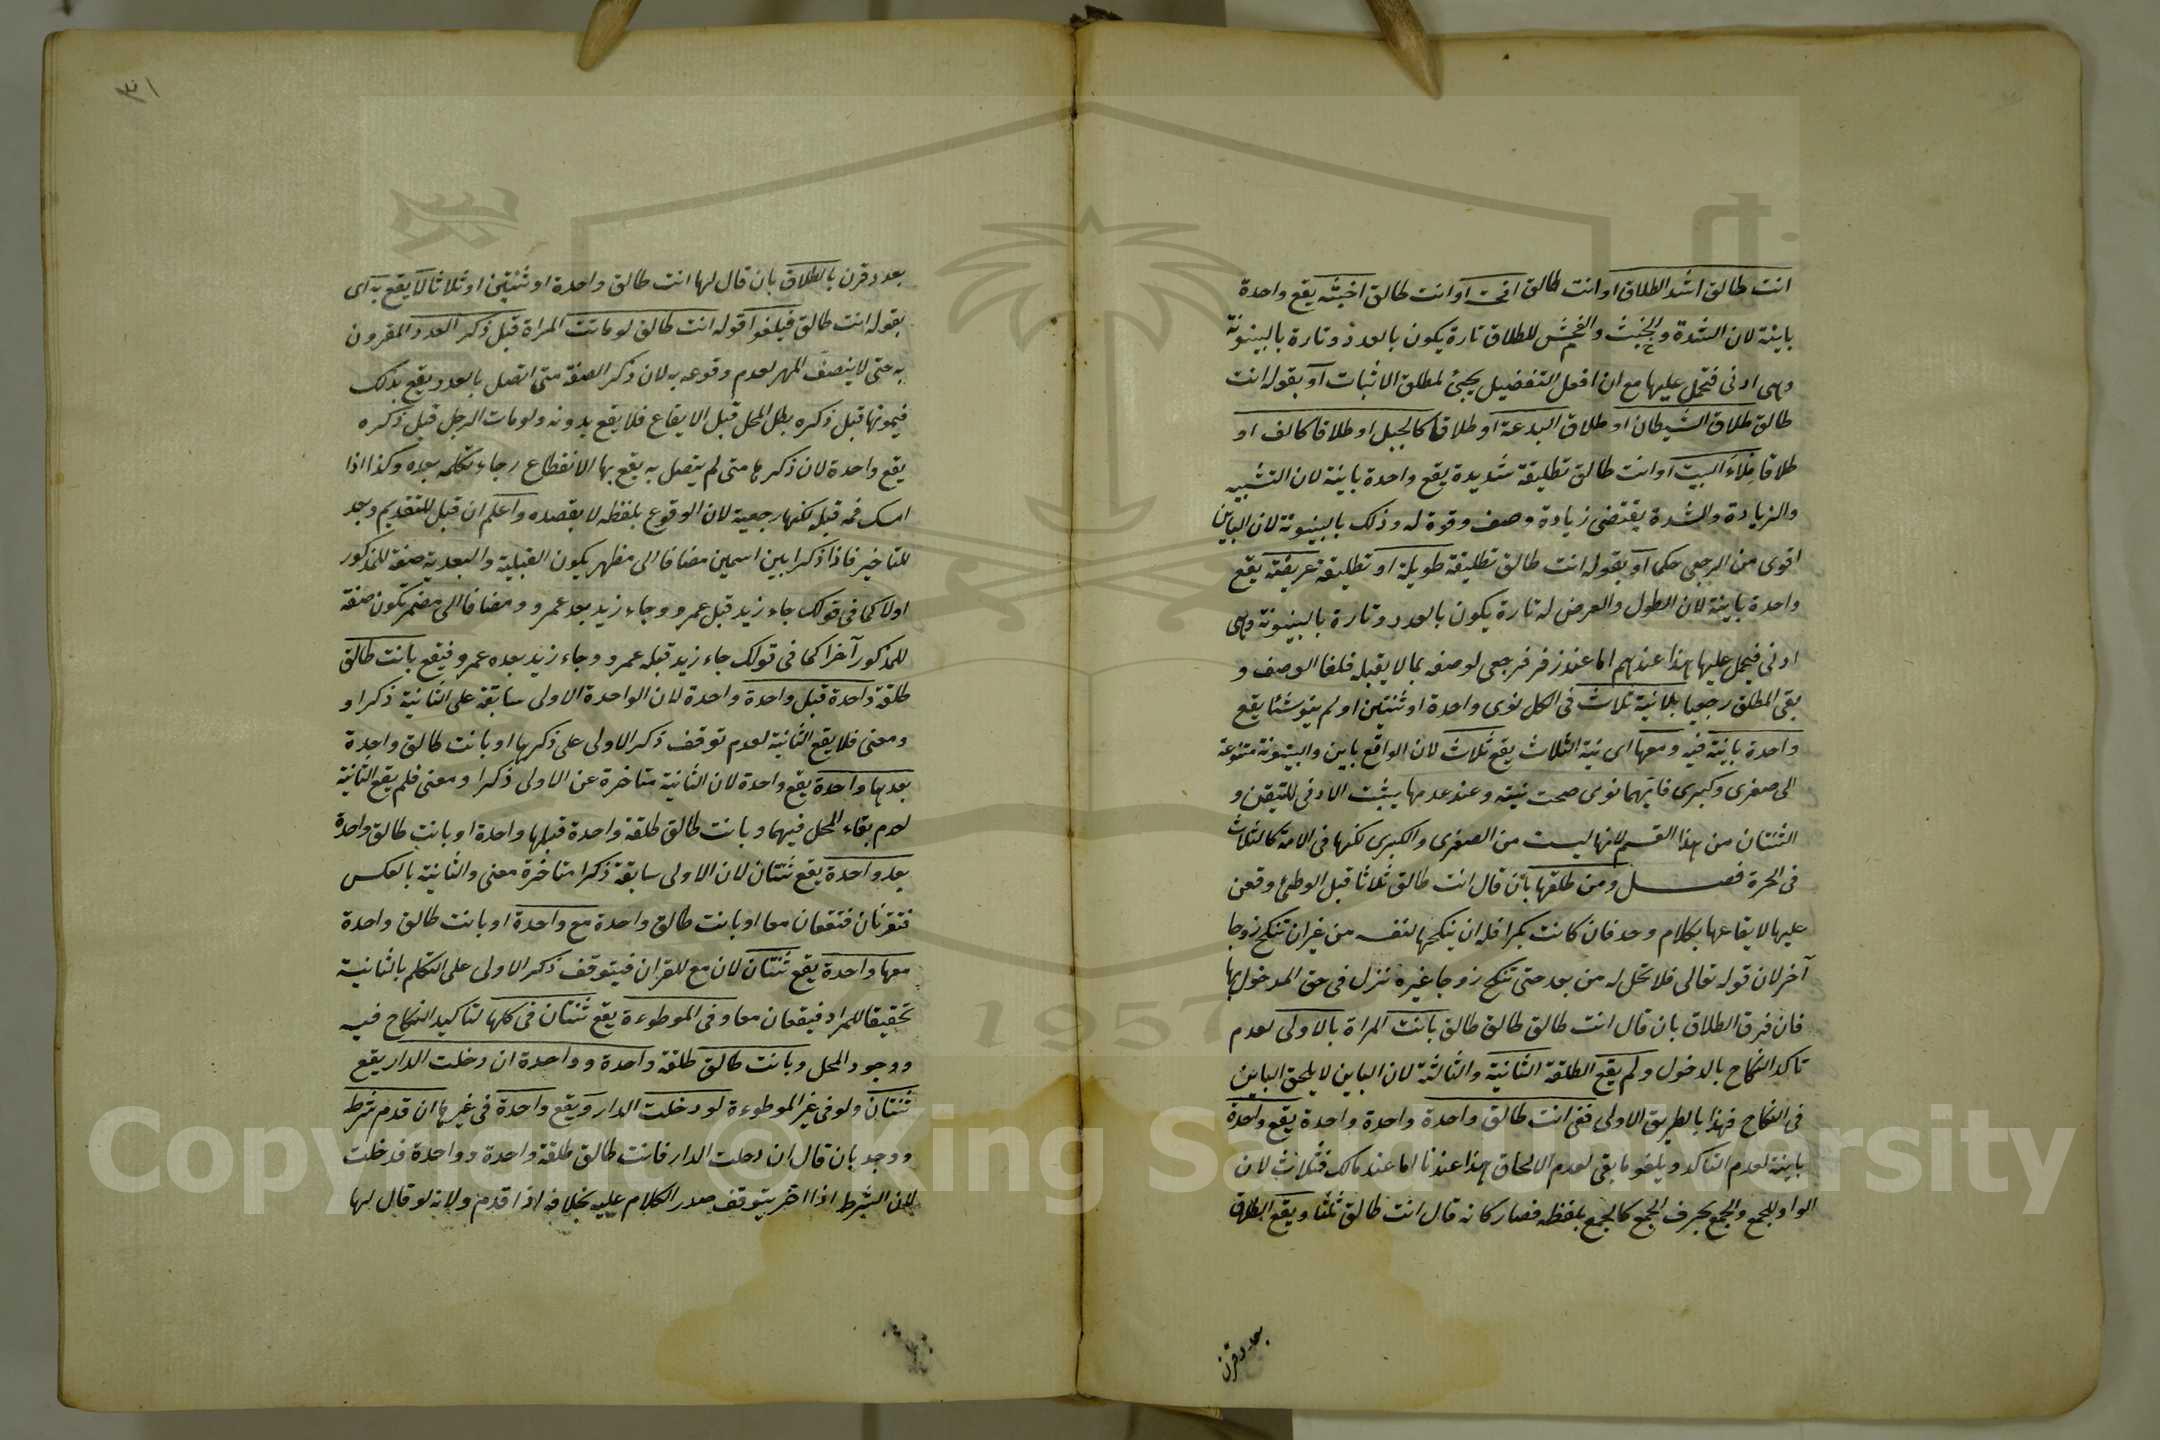 انت طالق اشد الطلاق او انت طالق افحش او انت طالق اخبثه يقع واحدة
باينة لان الشدة والخبث والفحش للطلاق تارة يكون بالعدد وتارة بالبينونة
وهى ادنى فتحمل عليها مع ان افعل التفضيل يجيئ لمطلق الاثبات او بقوله انت
طالق طلاق الشيطان او طلاق البدعة او طلاقا كالجبل او طلاقا كالف او
طلاقا ملاء البيت او انت طالق تطليقة شديدة يقع واحدة باينة لان التشبيه
والزيادة والشدة يقتضى زيادة وصف وقوة له وذلك بالبينونة لان الباين
اقوى من الرجعى حكما او بقوله انت طالق تطليقة طويلة او تطليقة عريضة يقع
واحدة باينة لان الطول والعرض له تارة يكون بالعدد وتارة بالبينونة وهى
ادنى فيحمل عليها هذا عندهم اما عند زفر فرجعى لوصفه بما لا يقبله فلغا الوصف و
بقى المطلق رجعيا بلا نية ثلاث فى الكل نوى واحدة او ثنتين او لم ينو شيئا يقع
واحدة باينة فيه ومعها اى نية الثلاث يقع ثلاث لان الواقع باين والبينونة متنوعة
الى صغرى وكبرى فايهما نوى صحت نيته وعند عدمها يثبت الادنى للتيقن و
الثنتان من هذا القسم لانها ليست من الصغرى والكبرى لكنها فى الامة كالثلاث
فى الحرة فصل ومن طلقها بان قال انت طالق ثلاثا قبل الوطئ وقعن
عليها لايقاعها بكلام وحد فان كانت بكرا فله ان ينكحها لنفسه من غير ان تنكح زوجا
آخر لان قوله تعالى فلا تحل له من بعد حتى تنكح زوجا غيره نزل فى حق المدخول بها
فان فرق الطلاق بان قال انت طالق طالق طالق بانت المراة بالاولى لعدم
تاكد النكاح بالدخول ولم يقع الطلقة الثانية والثالثة لان الباين لا يلحق الباين
فى النكاح فهذا بالطريق الاولى ففى انت طالق واحدة واحدة واحدة يقع واحدة
باينة لعدم التاكد ويلغو ما بقى لعدم الالحاق هذا عندنا اما عند مالك فثلاث لان
الواو للجمع والجمع بحرف الجمع كالجمع بلفظه فصار كانه قال انت طالق ثلثا ويقع الطلاق
بعدد قرن
٣١
بعدد قرن بالطلاق بان قال لها انت طالق واحدة او ثنتين او ثلاثا لا يقع به اى
بقوله انت طالق فيلغو اقوله انت طالق لو ماتت المراة قبل ذكر العدد المقرون
به حتى لا ينصف المهر لعدم وقوعه به لان ذكر الصفة متى اتصل بالعدد يقع بذلك
فيموتها قبل ذكره بطل المحل قبل الايقاع فلا يقع بدونه ولو مات الرجل قبل ذكره
يقع واحدة لان ذكرها متى لم يتصل به يقع بها الانقطاع رجاء تكلمه بعده وكذا اذا
امسك فمه قبله لكنها رجعية لان الوقوع بلفظه لا بقصده واعلم ان قبل للتقديم وبعد
للتاخير فاذا ذكرا بين اسمين مضافا الى مظهر يكون القبلية والبعدية صفة للمذكور
اولا كما فى قولك جاء زيد قبل عمرو وجاء زيد بعد عمرو ومضافا الى مضمر تكون صفة
للمذكور آخرا كما فى قولك جاء زيد قبله عمرو وجاء زيد بعده عمرو فيقع بانت طالق
طلقة واحدة قبل واحدة واحدة لان الواحدة الاولى سابقة على الثانية ذكرا و
ومعنى فلا يقع الثانية لعدم توقف ذكر الاولى على ذكرها او بانت طالق واحدة
بعدها واحدة يقع واحدة لان الثانية متاخرة عن الاولى ذكرا ومعنى فلم يقع الثانية
لعدم بقاء المحل فيهما وبانت طالق طلقة واحدة قبلها واحدة او بانت طالق واحدة
بعد واحدة يقع ثنتان لان الاولى سابقة ذكرا متاخرة معنى والثانية بالعكس
فتقرنان فتقعان معا او بانت طالق واحدة مع واحدة او بانت طالق واحدة
معها واحدة يقع ثنتان لان مع للقران فيتوقف ذكر الاولى على التكلم بالثانية
تحقيقا للمراد فيقعان معا وفى الموطوءة يقع ثنتان فى كلها لتاكيد النكاح فيه
ووجود المحل وبانت طالق طلقة واحدة وواحدة ان دخلت الدار يقع
ثنتان ولو فى غير الموطوءة لو دخلت الدار ويقع واحدة فى غيرها ان قدم شرط
ووجد بان قال ان دخلت الدار فانت طالق طلقة واحدة وواحدة فدخلت
لان الشرط اذا اخر يتوقف صدر الكلام عليه بخلافه اذا قدم ولانه لو قال لها
Copyright © King Saud University
1957